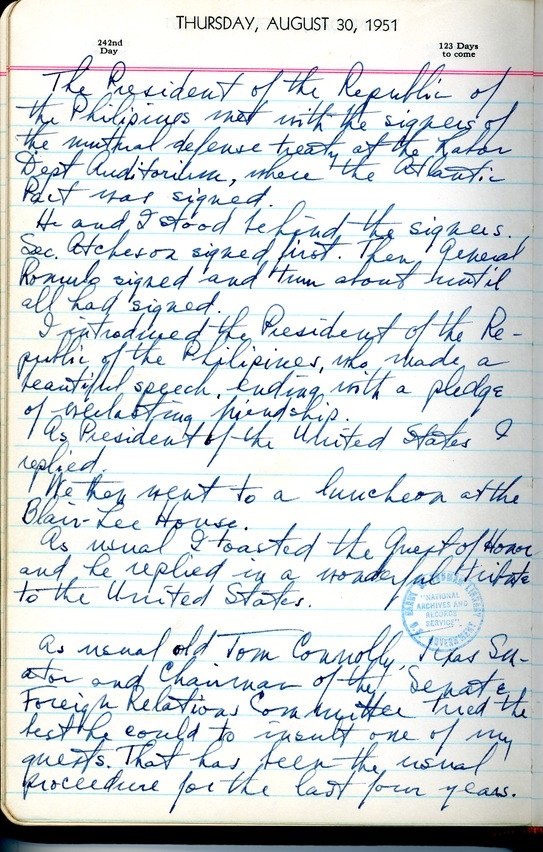 THURSDAY, AUGUST 30, 1951
242nd
Day
123 Days
to come
The President of the Republic of
the Philipines met with the signers of
the mutual defense treaty at the Labor
Dept Auditorium, where the Atlantic
Pact was signed.
He and I stood behind the signers.
Sec. Atcheson signed first. Then General
Romulo signed and turn about until
all had signed.
I introduced the President of the Re-
public of the Philipines, who made a
beautiful speech, ending with a pledge
of everlasting friendship.
As President of the United States I
replied.
We then went to a luncheon at the
Blair-Lee House.
As usual I toasted the Guest of Honor
and he replied in a wonderful tribute
to the United States.
"NATIONAL
ARCHIVES AND
RECORDS
SERVICE"
As usual old Tom Connolly, Texas Sen-
ator and Chairman of the Senate
Foreign Relations Committee tried the
best he could to insult one of my
guests. That has been the usual
proceedure for the last four years.